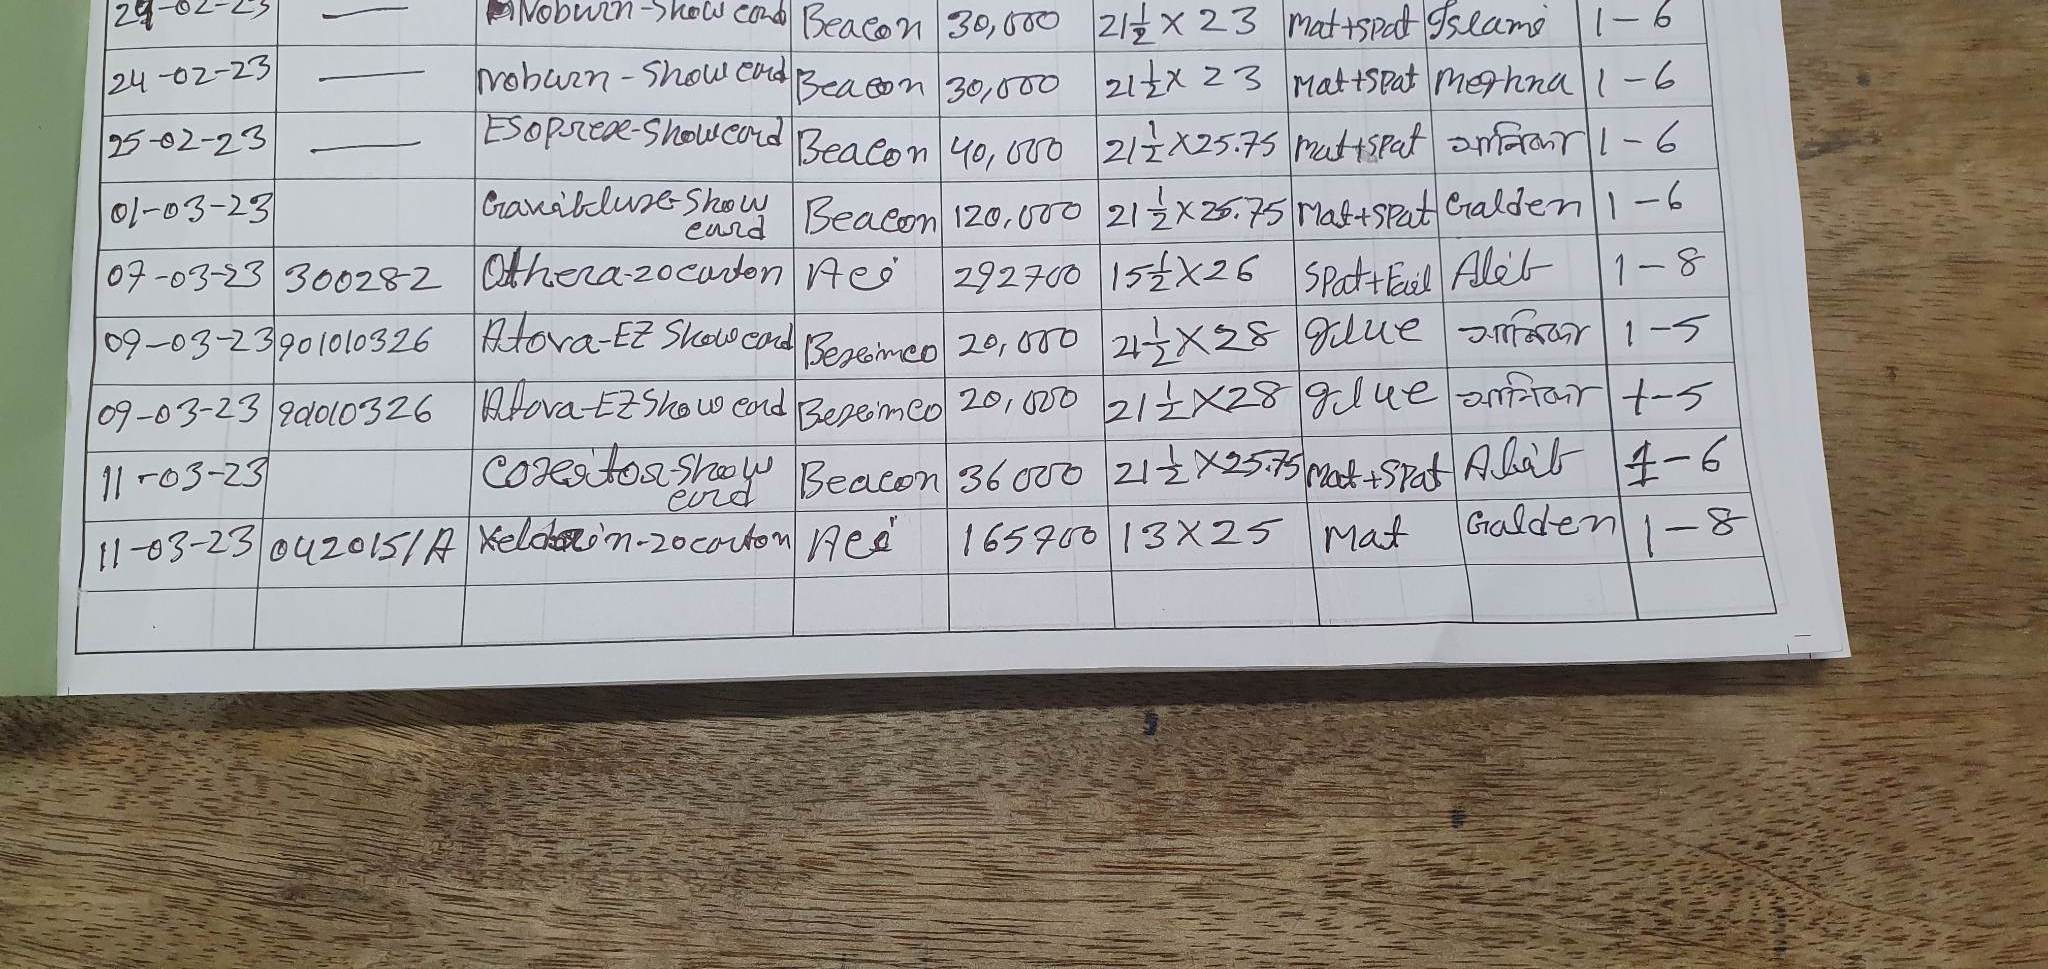 24-02-23 — Noburn-Show card Beacon 30,000 21½ X 23 Mat+spat Islami 1-6
24-02-23 — Noburn-Show card Beacon 30,000 21½ X 23 Mat+Spat Meghna 1-6
25-02-23 — Esoprex-Show card Beacon 40,000 21½ X 25.75 Mat+spat 1-6
01-03-23 Show card Beacon 120,000 21½ X 25.75 Mat+spat Galden 1-6
07-03-23 300282 Othera-20 carton Aci 292700 15½ X 26 Spat+Foil Alif 1-8
09-03-23 901010326 Atova-EZ Show card Beximco 20,000 21½ X 28 glue 1-5
09-03-23 Atova-EZ Show card Beximco 20,000 21½ X 28 glue 1-5
11-03-23 Show card Beacon 36000 21½ X 25.75 Mat+Spat Alif 1-6
11-03-23 042015/A 20 carton Aci 165700 13 X 25 Mat Galden 1-8